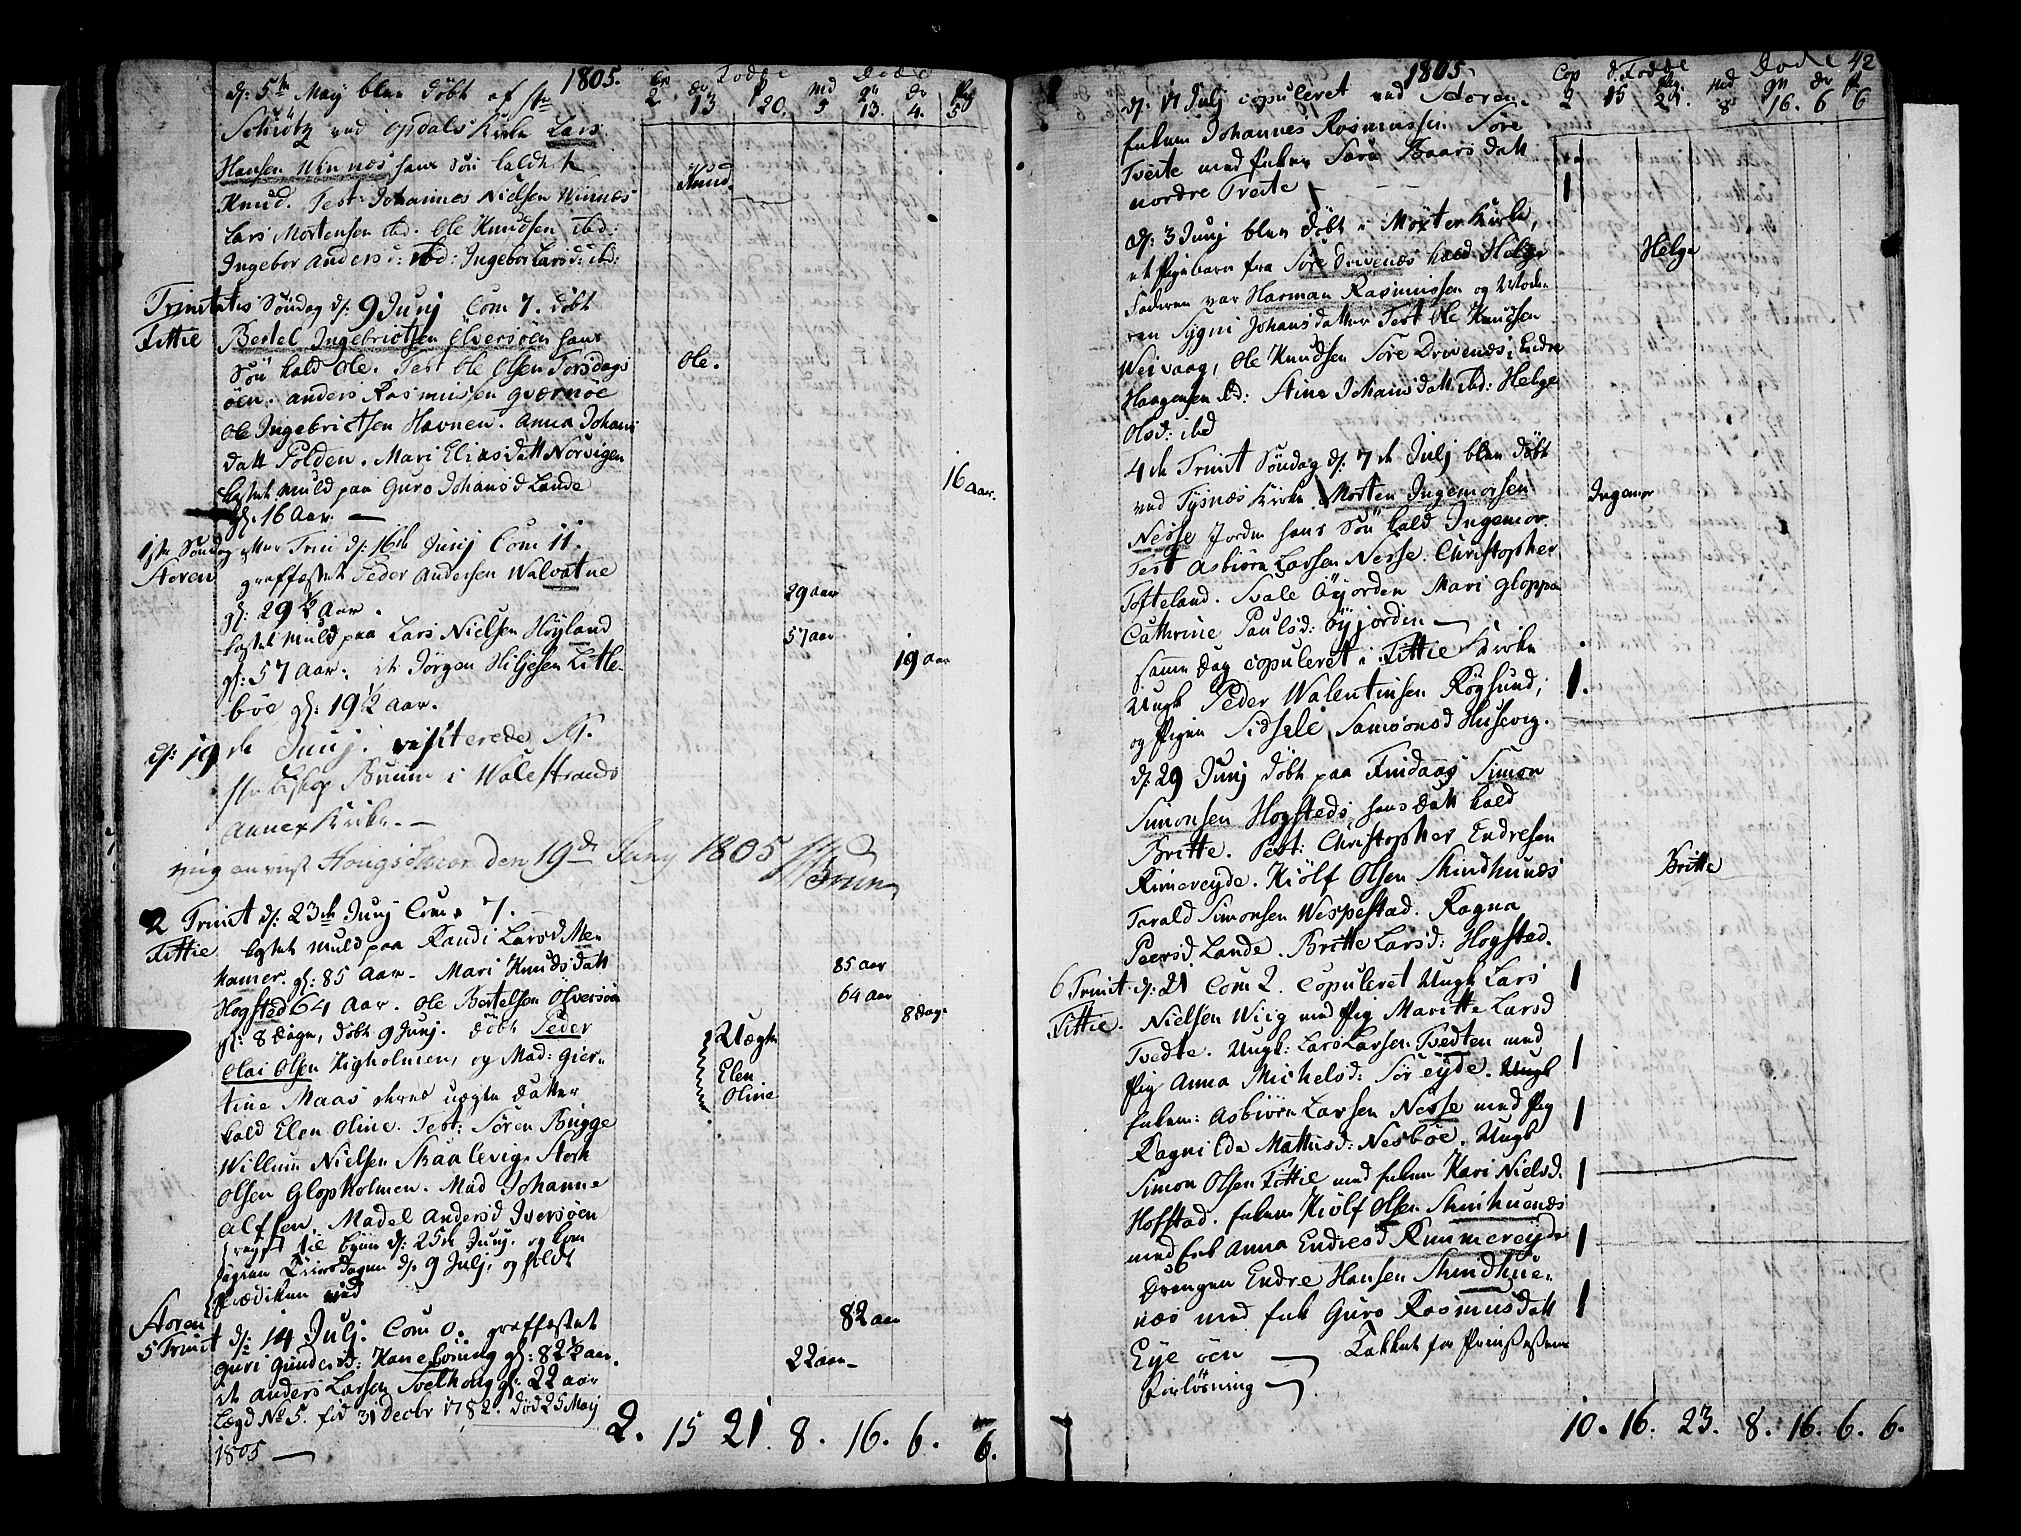 1805.
Cop Fødde Døde
2 13 20. 5 13. 4. 5
d: 5te May blev døbt af Hr
Schiötz ved Opdals Kirke Lars
Hansen Winnes hans Søn kaldet
Knud. Test: Johannes Nielsen Winnes
Lars Mortensen ibd. Ole Knudsen ibd:
Ingebor Anders d: ibd: Ingebor Lars d: ibd:
Knud.
Trinitatis Søndag d: 9 Junj Com 7. døbt
Fittie Bertel Ingebrictsen Olversøen hans
Søn kald Ole. Test Ole Olsen Torsdags
øen. Anders Rasmussen Qvernøe
Ole Ingebrictsen Havnen. Anna Johans
datt Polden. Mari Eliasdatt Norvigen
kastet Muld paa Guro Johansd Lande
gl: 16 Aar. —
Ole.
16 aar.
1ste Søndag efter Trin d: 16de Junj Com 11.
Storen grafffæstet Peder Andersen Walvatne
gl: 29 ½ Aar.
kastet Muld paa Lars Nielsen Höyland
gl: 57 Aar. it: Jørgen Hiljesen Litle-
böe gl: 19 ½ Aar.
29 aar
57 aar
19 aar
d: 19de Junj. visiterede
Hr Biskop Bruun i Walestrands
Annex Kirke. —
den 19de Juny 1805
Brun
2 Trinit d: 23de Junj Com. 7.
Fittie kastet Muld paa Randi Larsd Me-
hamer. gl: 85 Aar. Mari Knudsdatt
Hogsted 64 Aar. Ole Bertelsen Olversøen
gl: 8 Dage, døbt 9 Junj. døbt Peder
Olai Olsen Kigholmen, og Mad: Gier-
tine Maas deres uægte Datter
kald Elen Oline. Test: Søren Bugge
Willum Nielsen Skaalevig. Stork
Olsen Glopholmen. Mad Johanne
Alfsen. Madel Andersd Iversöen
85 aar
64 aar
8 Dage
Uægte
Elen
Oline
reyst til byen d: 25de Junj. og kom
igien Tiirsdagen d: 9 Julj, og holdt
Prædiken
Storen
5 Trinit d: 14 Julj. Com 0. grafffæstet
Guri Gundersd: gl: 82 ½ aar.
it Anders Larsen Tvelhoug gl: 22 aar
Lægd No 5. fød 31 Decbr 1782. død 25 Maij
1805 —
82 aar
22 aar
2. 15 21. 8. 16. 6. 6.
1805
42
Cop d. Fødde Døde
2 15 21. 8 16. 6 6
d: 14 Julj copuleret ved Storen
Enkem Johannes Rasmussen Søre
Tveite med Enken Sara Baarsdatt
nordre Tveite
d: 3 Junj blev døbt i Møxter Kirke,
et Pigebarn fra Søre Drivenæs kald Helge
Faderen var Harman Rasmussen og Mode-
ren Sygni Johansdatter Test Ole Knudsen
Weivaag, Ole Knudsen Søre Drivenæs, Endre
Haagensen ibd: Aine Johansdatt ibd: Helge
Olsd: ibd
Helge
4de Trinit Søndag d: 7de Julj blev døbt
ved Tysnæs Kirke Morten Ingemorsen
Nesse Jorden hans Søn kald Ingemor.
Test Asbiørn Larsen Nesse. Christopher
Tofteland. Svale Öyjorden Mari Gloppen
Cathrine Paulsd: Öyjorden —
Ingemor
samme Dag copuleret i Fittie Kirke
Ungk Peder Walentinsen Røgsund,
og Pigen Sidsele Samsonsd Husevig.
d: 29 Junj døbt paa Findaas Simon
Simonsen Hogsteds, hans Datt kald
Britte. Test: Christopher Endresen
Rimereyde. Kiölf Olsen Skindhunæs
Tarald Simonsen Wespestad. Ragna
Peersd Lande. Britte Larsd: Hogsted.
Britte
6 Trinit d: 21 Com 2. copuleret Ungk Lars
Fittie. Nielsen Wiig med Pig Maritte Larsd
Tvedte. Ungk: Lars Larsen Tvedten med
Pig Anna Michelsd: Sør eyde. Ungk
Enkem: Asbiörn Larsen Nesse med Pig
Ragnilde Mathisd: Nesböe. Ungk
Simon Olsen Fittie med Enken Kari Nielsd.
Hofstad. Enkem Kiölf Olsen Skinhuenæs
med Enk Anna Endresd Rimmereyde
Drengen Endre Hansen Skindhue-
næs med Enk Guro Rasmusdatt
Eye öen — Takket for Prinsessens
Forløsning —
10. 16. 23. 8. 16. 6. 6.